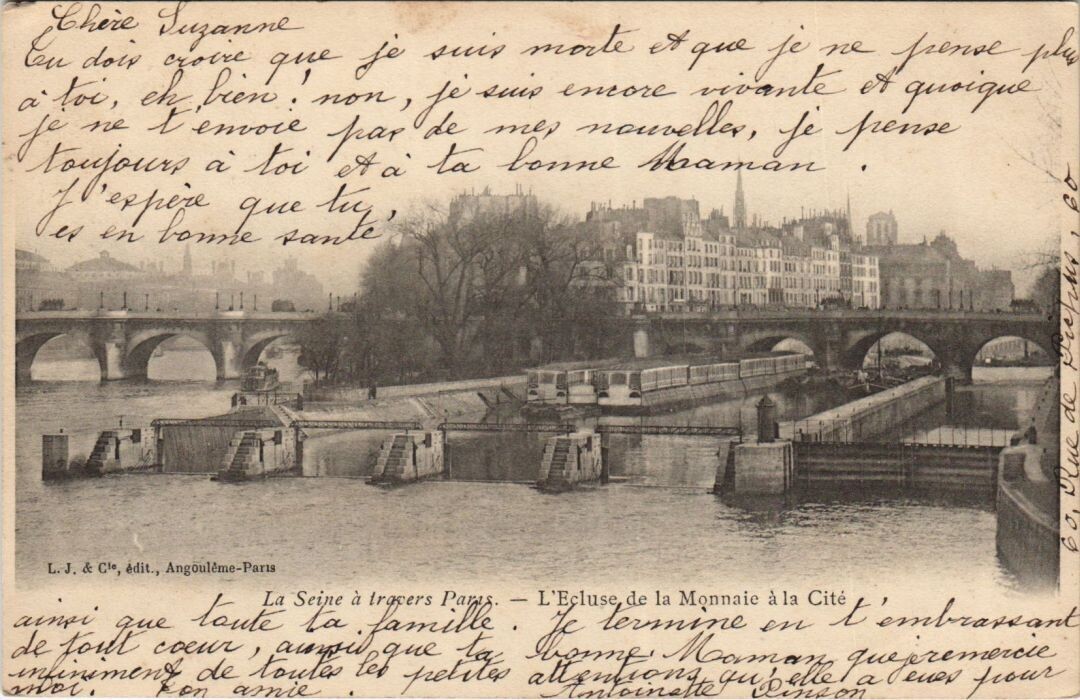 Chère Suzanne
Tu dois croire que je suis morte et que je ne pense plus
à toi, eh bien ! non, je suis encore vivante et quoique
je ne t'envoie pas de mes nouvelles, je pense
toujours à toi et à ta bonne Maman .
J'espère que tu,
es en bonne santé
L. J. & Cie, édit., Angoulême-Paris
La Seine à travers Paris. — L'Ecluse de la Monnaie à la Cité
ainsi que toute ta famille . Je termine en t'embrassant
de tout cœur, ainsi que ta bonne Maman que je remercie
infiniment de toutes les petites attentions qu'elle a eues pour
moi. Ton amie . Antoinette Pinson
60, Rue de Picpus, 60